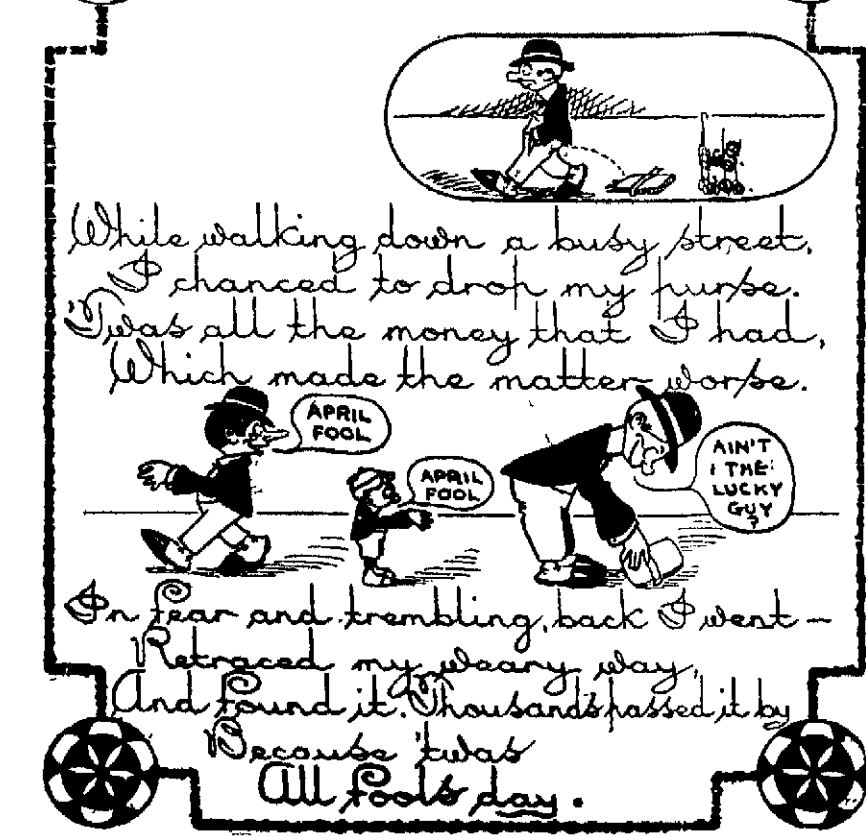 While walking down a busy street,
I chanced to drop my purse.
'Twas all the money that I had,
Which made the matter worse.
APRIL
FOOL
APRIL
FOOL
AIN'T
I THE
LUCKY
GUY
?
In fear and trembling, back I went —
Retraced my weary way,
And found it. Thousands passed it by
Because 'twas
All Fools day.